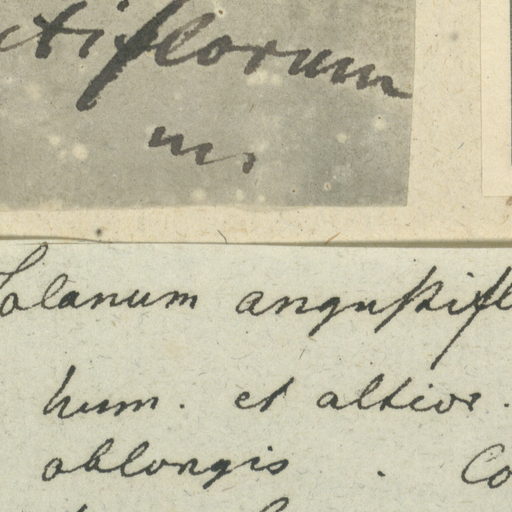 ctiflorum
m.
Solanum angustifl
hum. et altior.
oblongis . Co